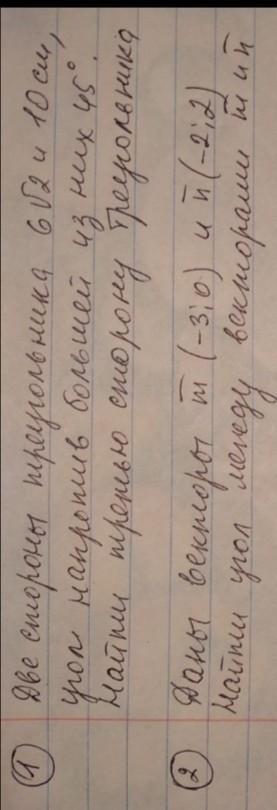 ① Две стороны треугольника 6√2 и 10 см,
угол напротив большей из них 45°.
Найти третью сторону треугольника
② Даны векторы m̅ (-3;0) и n̅ (-2;2)
Найти угол между векторами m̅ и n̅